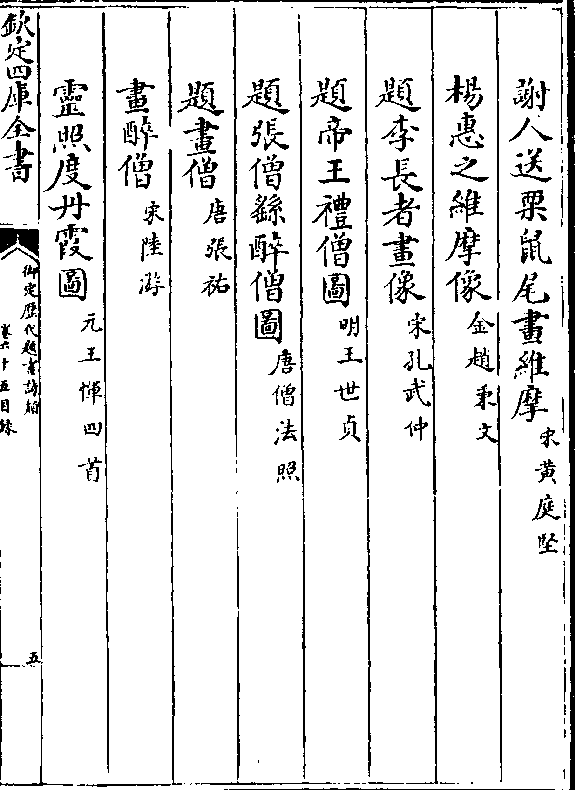 謝人送栗鼠尾畫維摩 宋黄庭堅
楊惠之維摩像 金趙秉文
題李長者畫像 宋孔武仲
題帝王禮僧圖 明王世貞
題張僧繇醉僧圖 唐僧法照
題畫僧 唐張祜
畫醉僧 宋陸游
靈照度丹霞圖 元王惲四首
欽定四庫全書
御定歷代題畫詩類
卷六十五目錄
五